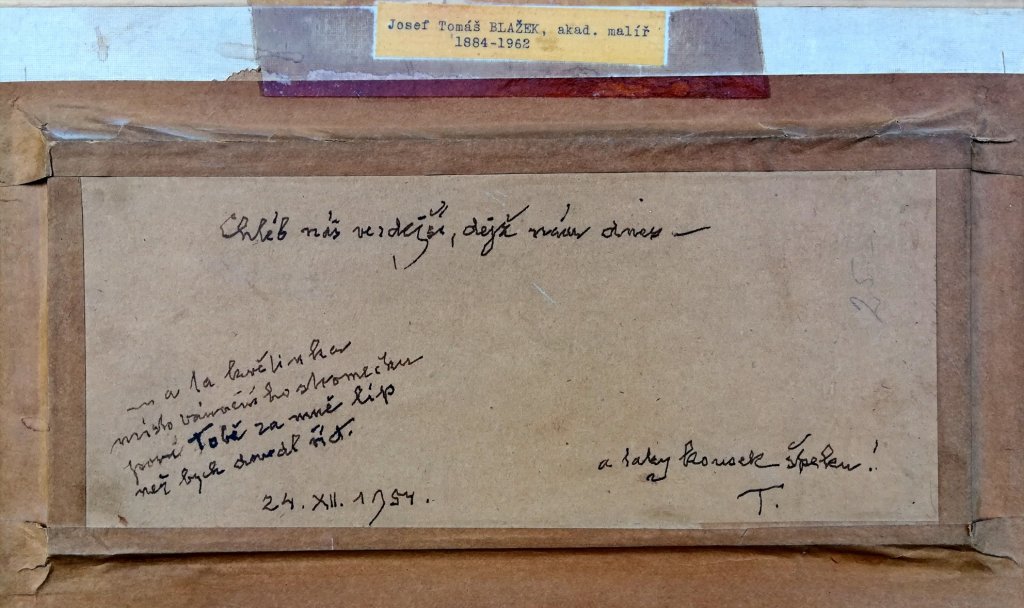 Josef Tomáš BLAŽEK, akad. malíř
1884-1962
Chléb náš vezdejší, dejž nám dnes —
a ta květinka
místo vánočního stromečku
poví Tobě za mně líp
než bych dovedl říct.
24. XII. 1954.
a taky kousek špeku!
T.
25-